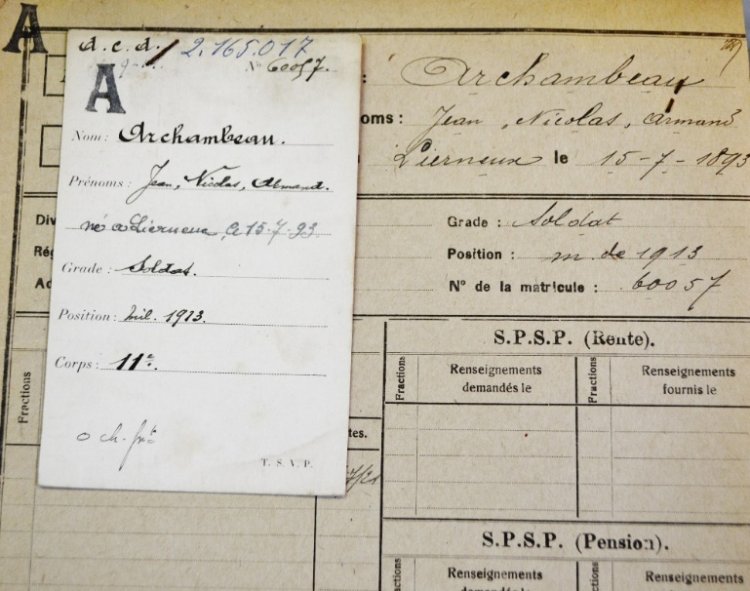 A
d.c.d. 2.165.017
N° 60057.
A
Nom: Archambeau.
Prénoms: Jean, Nicolas, Armand.
né a Lierneux, le 15.7.93
Grade: Soldat.
Position: Mil. 1913.
Corps: 11e.
T. S. V. P.
: Archambeau
oms: Jean, Nicolas, Armand
Lierneux le 15-7-1893
Div
Rég
Ad
Grade: Soldat
Position: m de 1913
N° de la matricule: 60057
Fractions
tes.
S.P.S.P. (Rente).
Fractions
Renseignements
demandés le
Fractions
Renseignements
fournis le
S.P.S.P. (Pension).
actions
Renseignements
demandés le
actions
Renseignements
fournis le